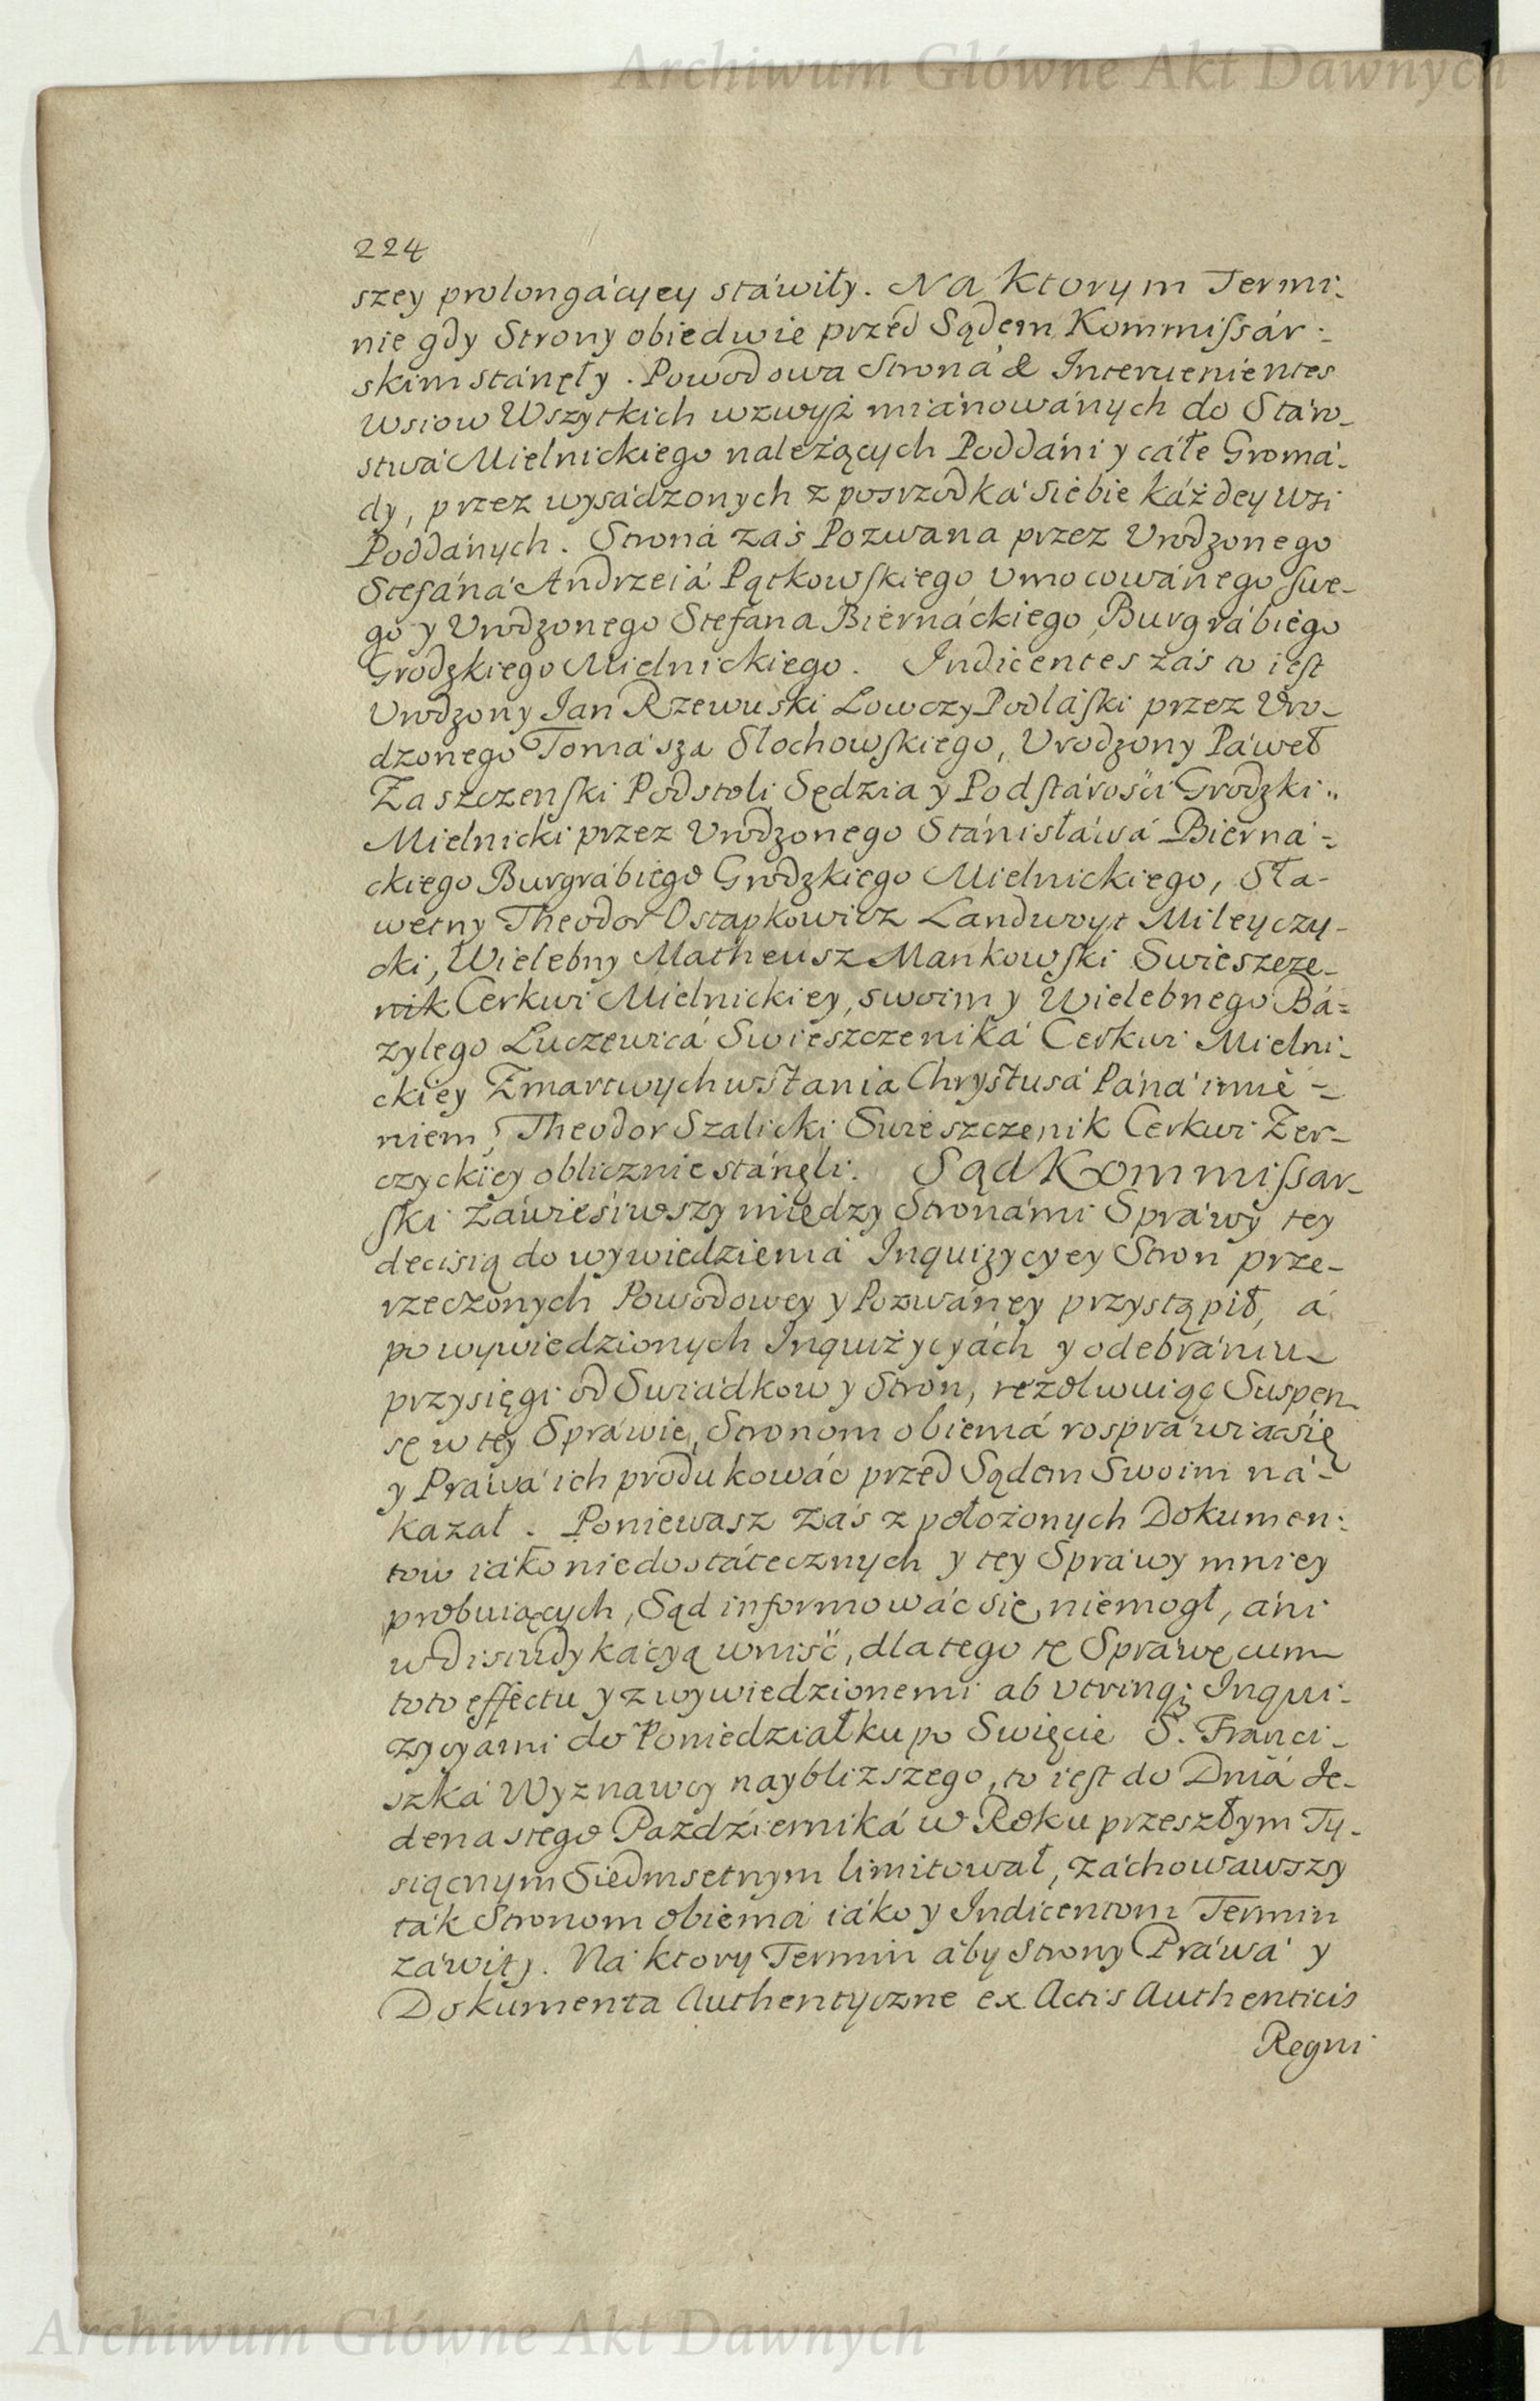 Archiwum Główne Akt Dawnych
224
szey prolongácyey stáwiły. Na Ktorym Termi:
nie gdy Strony obiedwie przed Sądem Kommissár:
skim stánęły. Powodowa Stroná & Interuenientes
Wsiow Wszytkich wzwyż miánowánych do Stárо-
stwá Mielnickiego należących Poddáni y cáłe Gromá-
dy, przez wysádzonych z posrzodká siebie káżdey wsi
Poddánych. Stroná záś Pozwana przez Vrodzonego
Stefáná Andrzeiá Pątkowskiego Vmocowánego swe-
go y Vrodzonego Stefana Biernáckiego, Burgrábiego
Grodzkiego Mielnickiego. Indicentes záś to iest
Vrodzony Jan Rzewuski Lowczy Podláski przez Vro-
dzonego Tomászа Stochowskiego, Vrodzony Páweł
Zaszczenski Podstoli Sędzia y Podstárości Grodzki
Mielnicki przez Vrodzonego Stánisłáwá Bierná=
ckiego Burgrábiego Grodzkiego Mielnickiego, Sła-
wetny Theodor Ostapkowicz Landwoyt Mileyczy-
cki, Wielebny Matheusz Mankowski Swieszcze-
nik Cerkwi Mielnickiey, swoim y Wielebnego Bá=
zylego Luczewicá Swieszczeniká Cerkwi Mielni-
ckiey Zmartwychwstania Chrystusá Páná imie-
niem, Theodor Szalicki Swieszczenik Cerkwi Zer-
czyckiey oblicznie stánęli. Sąd Kommissar-
ski záwiesiwszy między Stronámi Spráwy tey
decisią do wywiedzieniá Inquizycyey Stron prze-
rzeczonych Powodowey y Pozwáney przystąpił, á
po wywiedzionych Inquiżycyách y odebrániu
przysięgi od Swiadkow y Stron, rezolwuiąc Suspen-
sę w tey Spráwie, Stronom obiemá rospráwiac się
y Práwá ich produkowác przed Sądem Swoim ná-
kazał. Poniewasz záś z położonych Dokumen:
tow iáko niedostátecznych y tey Spráwy mniey
probuiących, Sąd informowác się niemogł, áni
w disiudykácyą wniść, dlatego tę Spráwę cum
toto effectu y z wywiedzionemi ab vtrinq; Inqui-
zycyami do Poniedziałku po Swięcie S. Fránci-
szká Wyznawcy naybliższego, to iest do Dniá Je-
denastego Pazdzierniká w Roku przeszłym Ty-
siącnym Siedmsetnym limitował, záchowawszy
ták Stronom obiemá iáko y Indicentom Termin
záwity. Ná ktory Termin áby Strony Práwá y
Dokumenta Authentyczne ex Actis Authenticis
Regni
Archiwum Główne Akt Dawnych